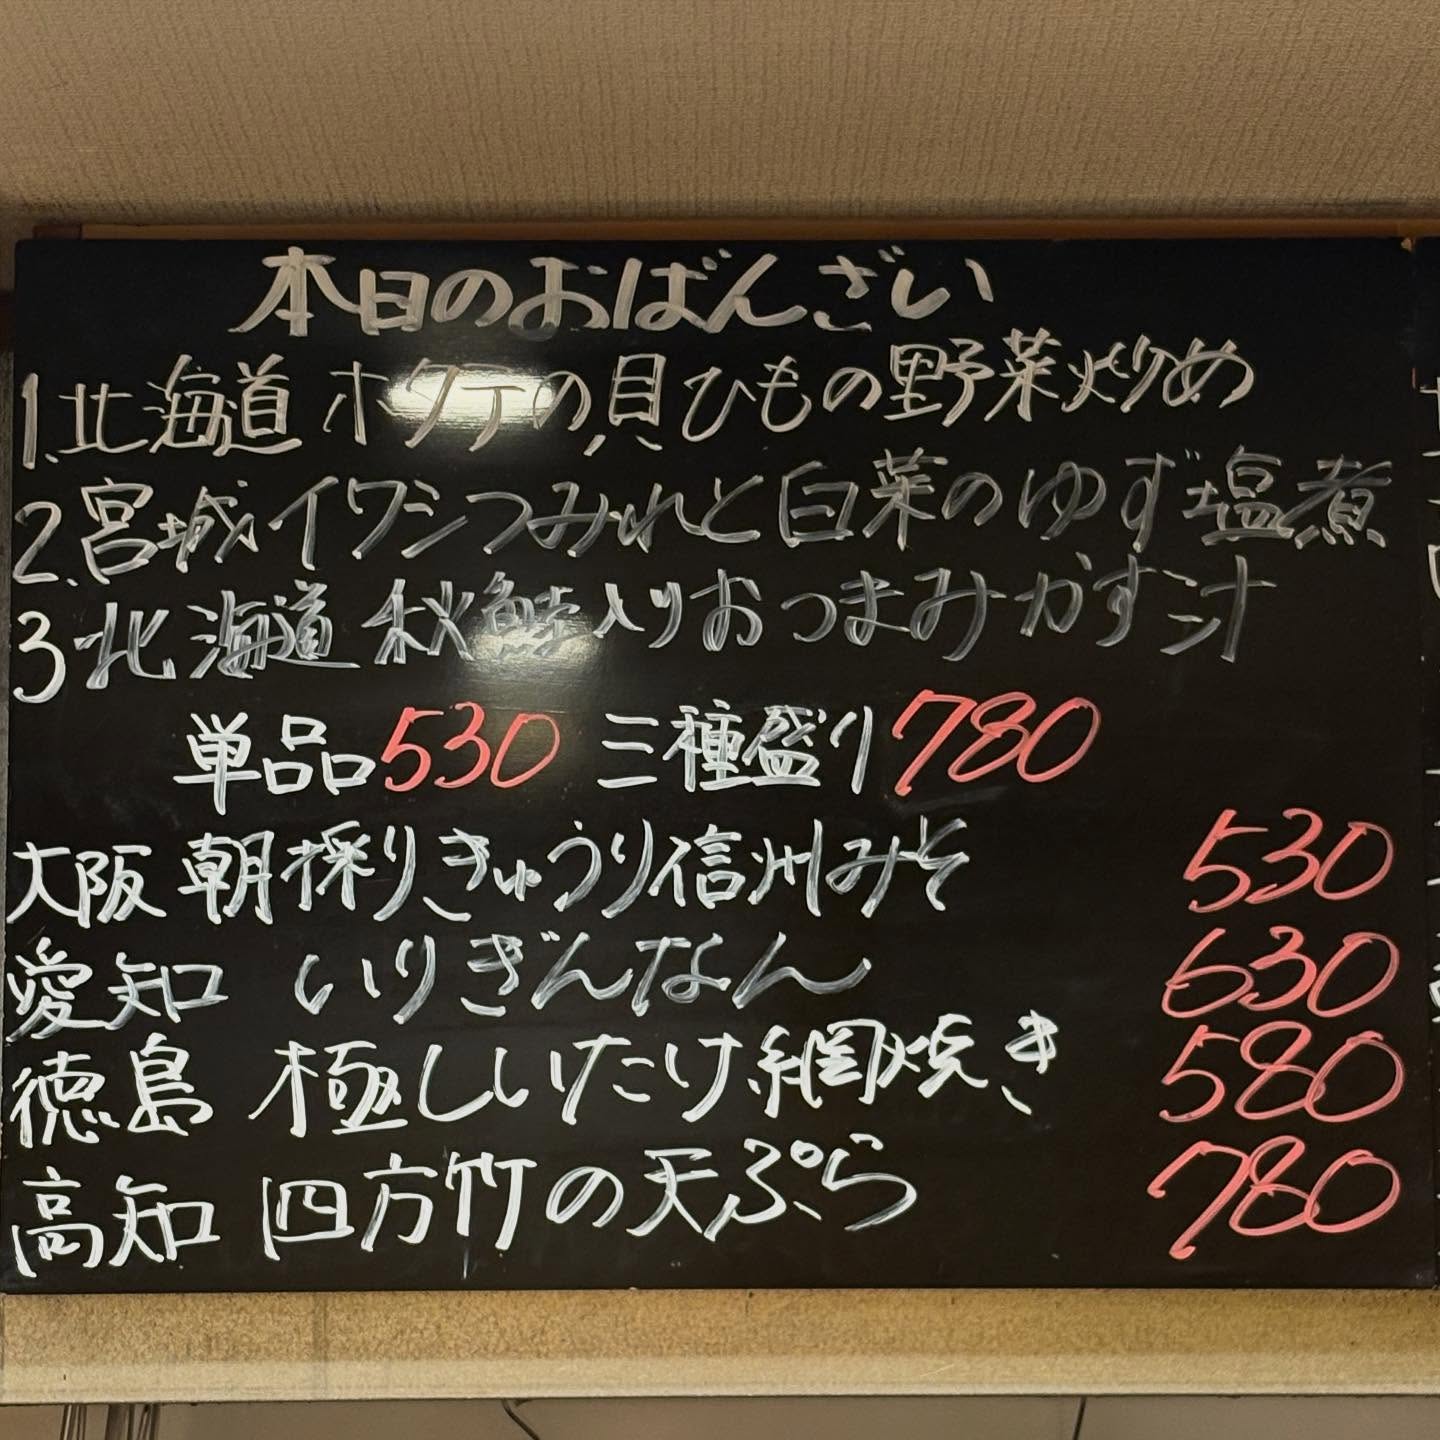 本日のおばんざい
1.北海道 ホタテの貝ひもの野菜炒め
2.宮城イワシつみれと白菜のゆず塩煮
3.北海道 秋鮭入りおつまみかす汁
単品530 三種盛り780
大阪 朝採りきゅうり信州みそ 530
愛知 いりぎんなん 630
徳島 極しいたけ網焼き 580
高知 四方竹の天ぷら 780